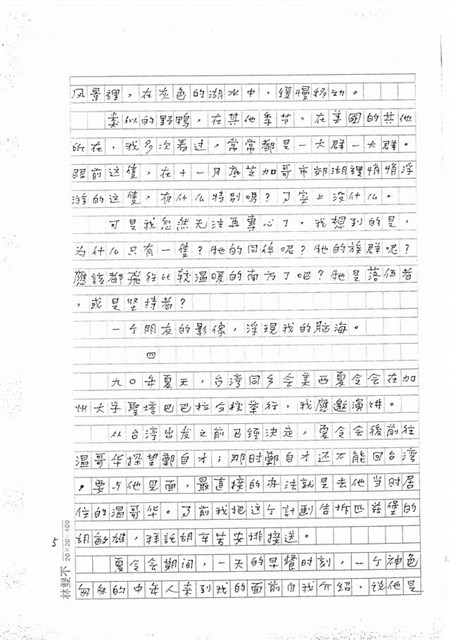 風景裡，在灰色的湖水中，緩慢移動。
類似的野鴨，在其他季节，在美國的其他
所在，我多次看过，常常都是一大群一大群。
眼前这隻，在十一月底芝加哥市郊湖裡悄悄浮
游的这隻，有什么特別嗎？其实也没什么。
可是我忽然无法再專心了。我想到的是，
为什么只有一隻？牠的同伴呢？牠的族群呢？
應該都飛往比較溫暖的南方了吧？牠是落伍者
，或是坚持者？
一个朋友的影像，浮現我的脑海。
四
九〇年夏天，台湾同乡会美西夏令会在加
州大学聖塔巴巴拉分校举行，我應邀演讲。
从台湾出发之前已經决定，夏令会後前往
温哥华探望鄭自才；那时鄭自才还不能回台湾
。要与他见面，最直接的办法就是去他当时居
住的温哥华。了前我把这个計劃告訴西茲堡的
胡
夏令会期间，一天的早餐时刻，一个神色
匆匆的中年人来到我的面前自我介紹，說他是
5
林雙不
20×20=400